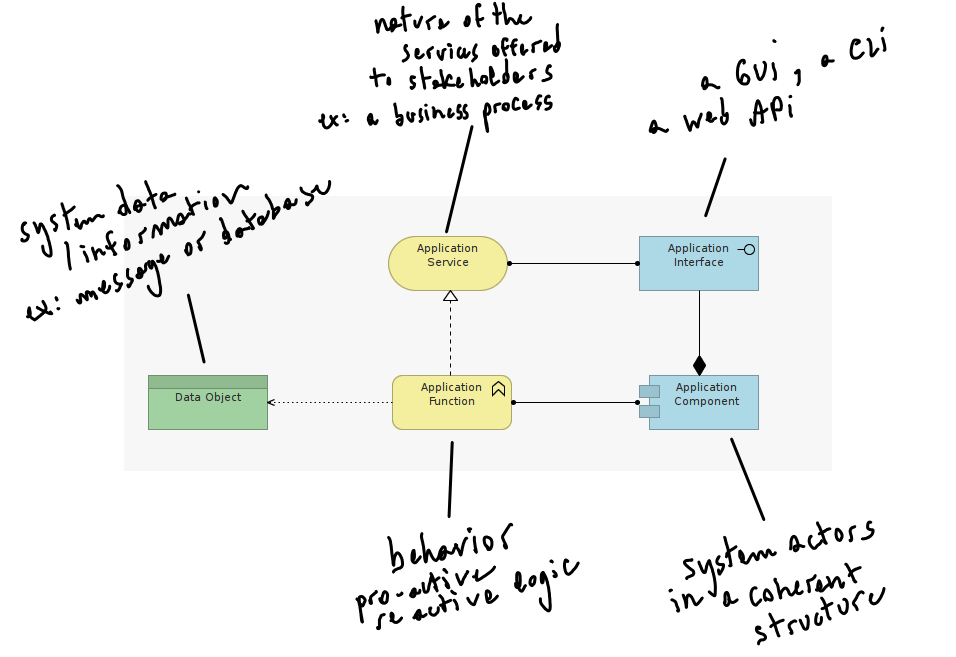 nature of the
services offered
to stakeholders
ex: a business process
a GUi, a CLi
a web APi
system data
/ information
ex: message or database
Application
Service
Application
Interface
Data Object
Application
Function
Application
Component
behavior
pro-active
reactive logic
system actors
in a coherent
structure